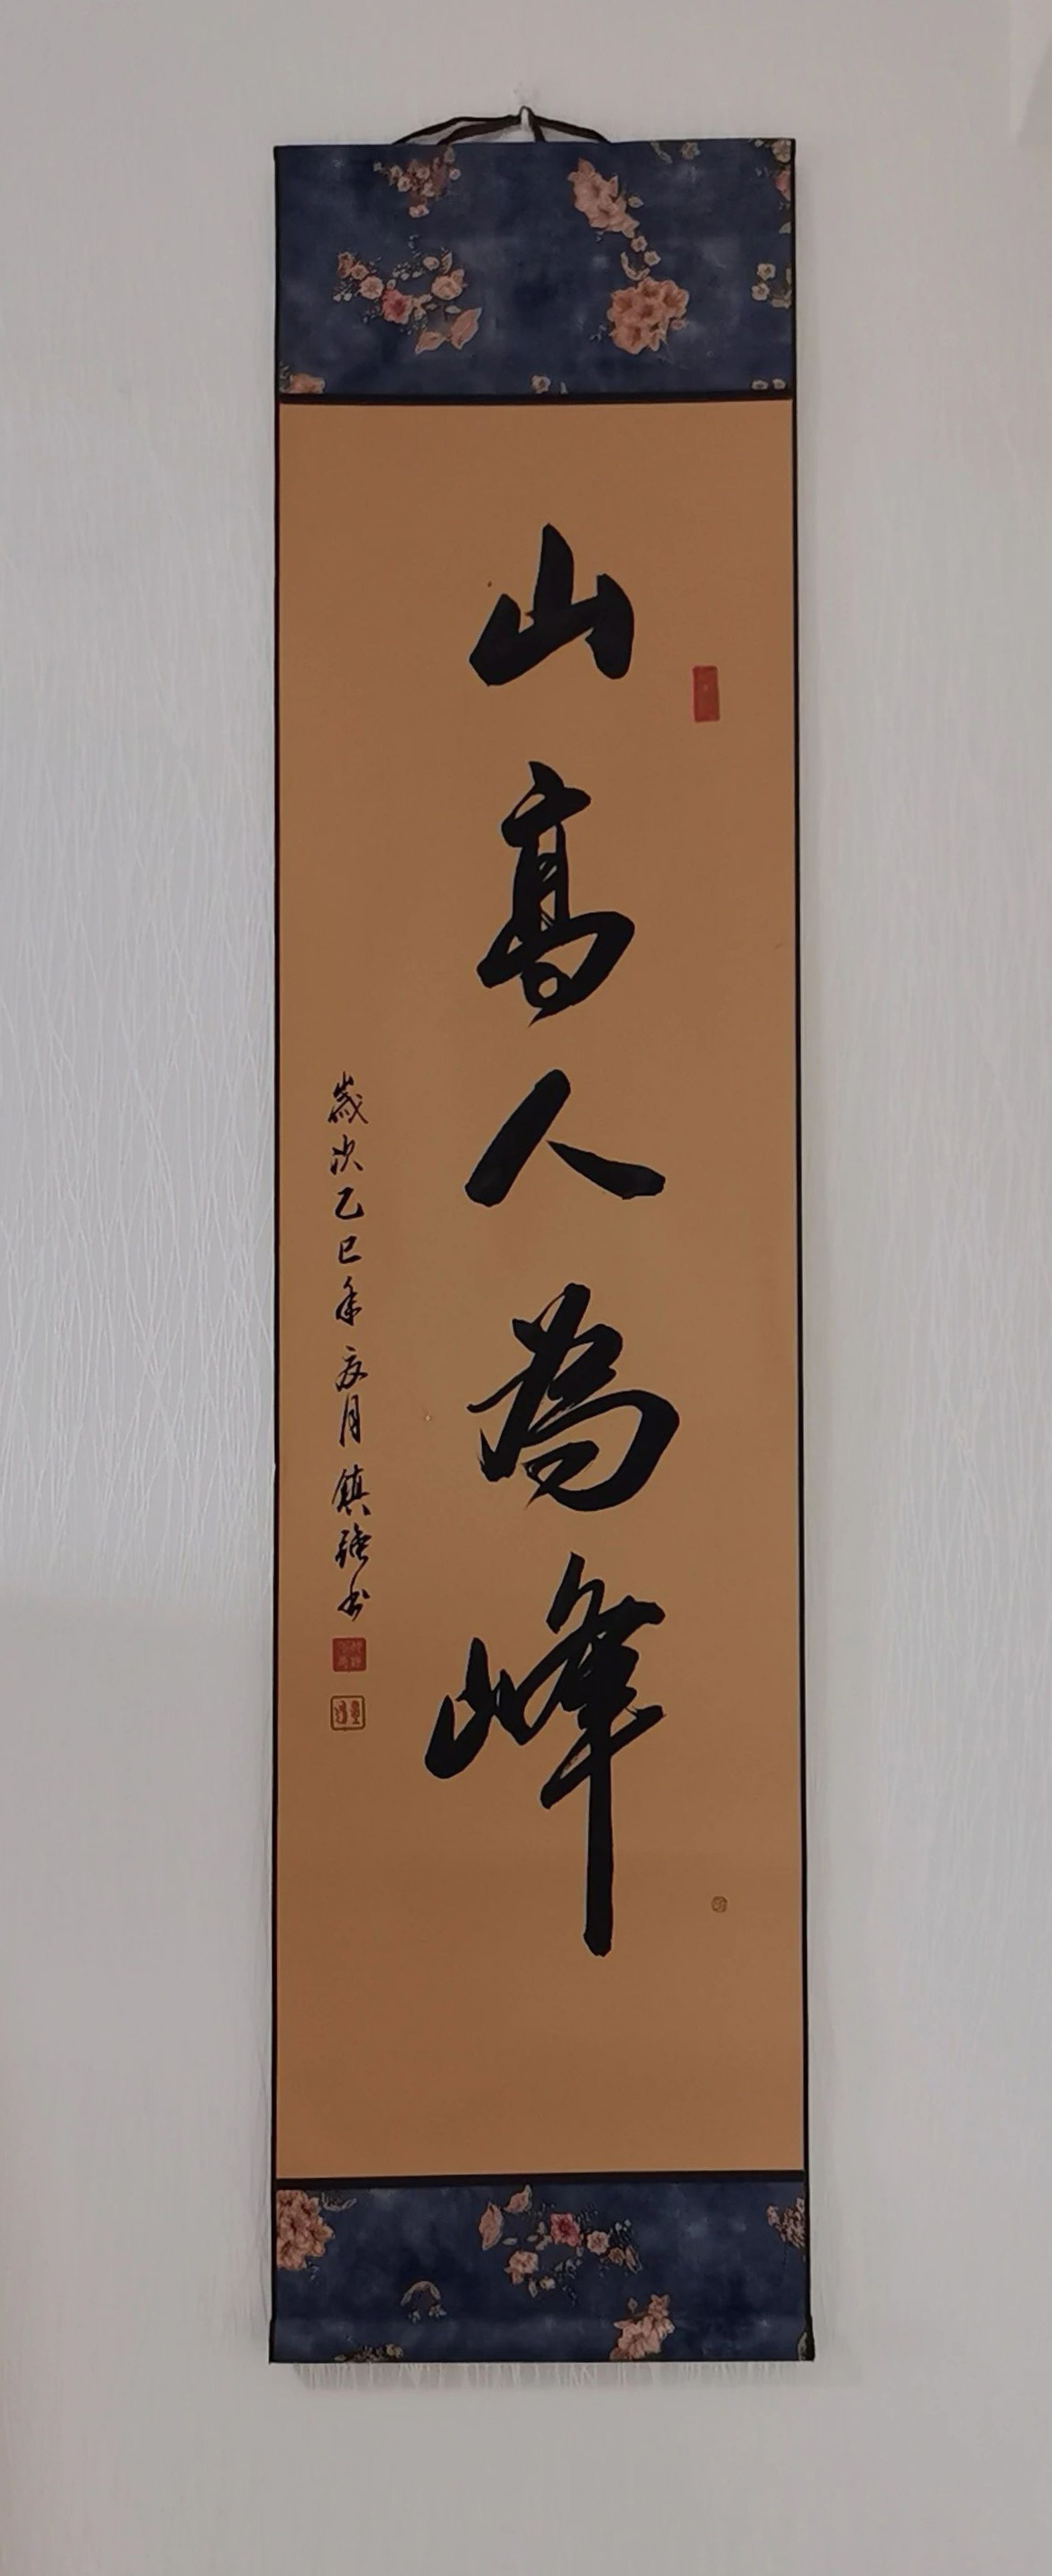 山高人為峰
歲次乙巳年夏月鎮強书